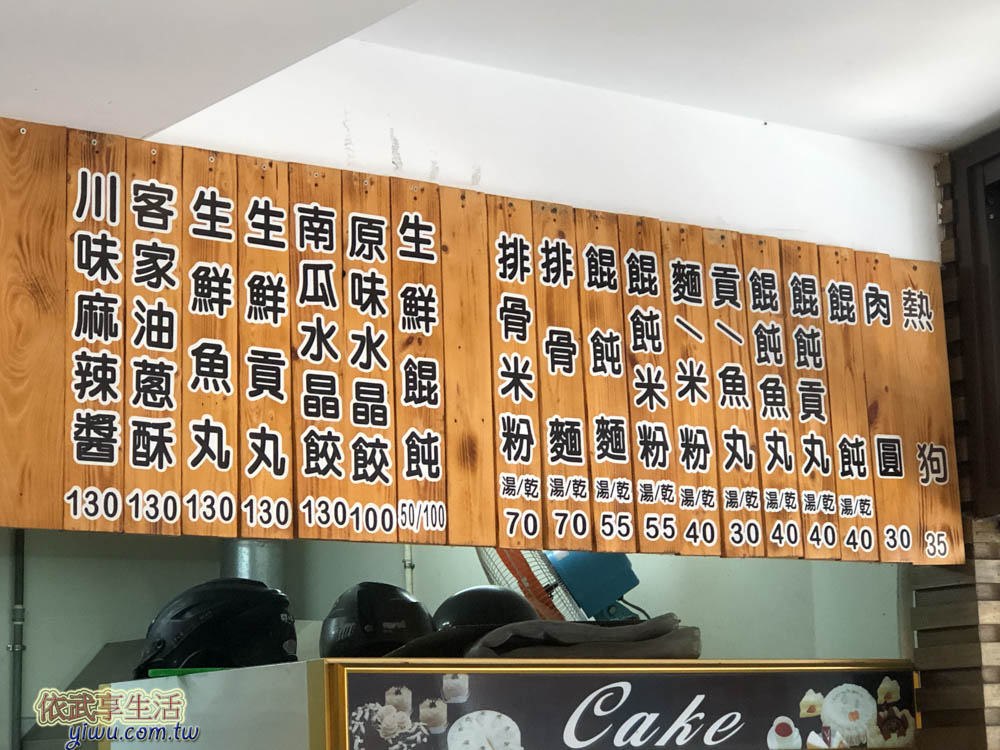 熱狗 35
肉圓 30
餛飩 湯/乾 40
餛飩貢丸 湯/乾 40
餛飩魚丸 湯/乾 40
貢/魚丸 湯/乾 30
麵/米粉 湯/乾 40
餛飩米粉 湯/乾 55
餛飩麵 湯/乾 55
排骨麵 湯/乾 70
排骨米粉 湯/乾 70
生鮮餛飩 50/100
原味水晶餃 100
南瓜水晶餃 130
生鮮貢丸 130
生鮮魚丸 130
客家油蔥酥 130
川味麻辣醬 130
Cake
依武享生活
yiwu.com.tw